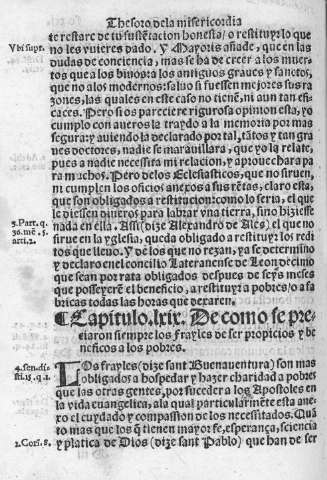 Thesoro dela misericordia
te restare de tu sustẽtacion honesta / o restituyr lo que
Vbi supr. no les vuieres dado. Y Mayoris añade, que en las
dudas de conciencia, mas se ha de creer a los muer
tos que a los biuos: a los antiguos graues y sanctos,
que no alos modernos: saluo si fuessen mejores sus ra
zones, las quales en este caso no tienẽ, ni aun tan efi-
caces. Pero si os pareciere rigurosa opinion esta, yo
cumplo con aueros la traydo a la memoria por mas
segura: y auiendo la declarado por tal, tãtos y tan gra
ues doctores, nadie se marauillara, que yo la relate,
pues a nadie necessita mi relacion, y aprouechara pa
ra muchos. Pero delos Eclesiasticos, que no siruen,
ni cumplen los oficios anexos a sus rẽtas, claro esta,
que son obligados a restitucion: como lo seria, el que
le diessen dineros para labrar vna tierra, sino hiziesse
3. Part. q. nada en ella. Assi (dize Alexandro de Ales) el que no
30. mẽ. 5. sirue en la yglesia, queda obligado a restituyr los redi
arti. 2. tos que lleuo. Y de los que no rezan, ya se determino
y declaro en el concilio Lateranense de Leon decimo
que sean por rata obligados despues de seys meses
que posseyerẽ el beneficio, a restituyr a pobres / o a fa
bricas todas las horas que dexaren.
¶Capitulo. lxix. De como se pre-
ciaron siempre los frayles de ser propicios y be
neficos a los pobres.
4. sen. di- LOs frayles (dize sant Buenauentura) son mas
sti. 15. q. 1. obligados a hospedar y hazer charidad a pobres
que las otras gentes, por suceder a los Apostoles en
la vida euangelica, ala qual particularmẽte esta ane-
xo el cuydado y compasson de los necessitados. Quã
to mas que los q̃ tienen mayor fe, esperança, sciencia
2. Cori. 8. y platica de Dios (dize sant Pablo) que han de ser